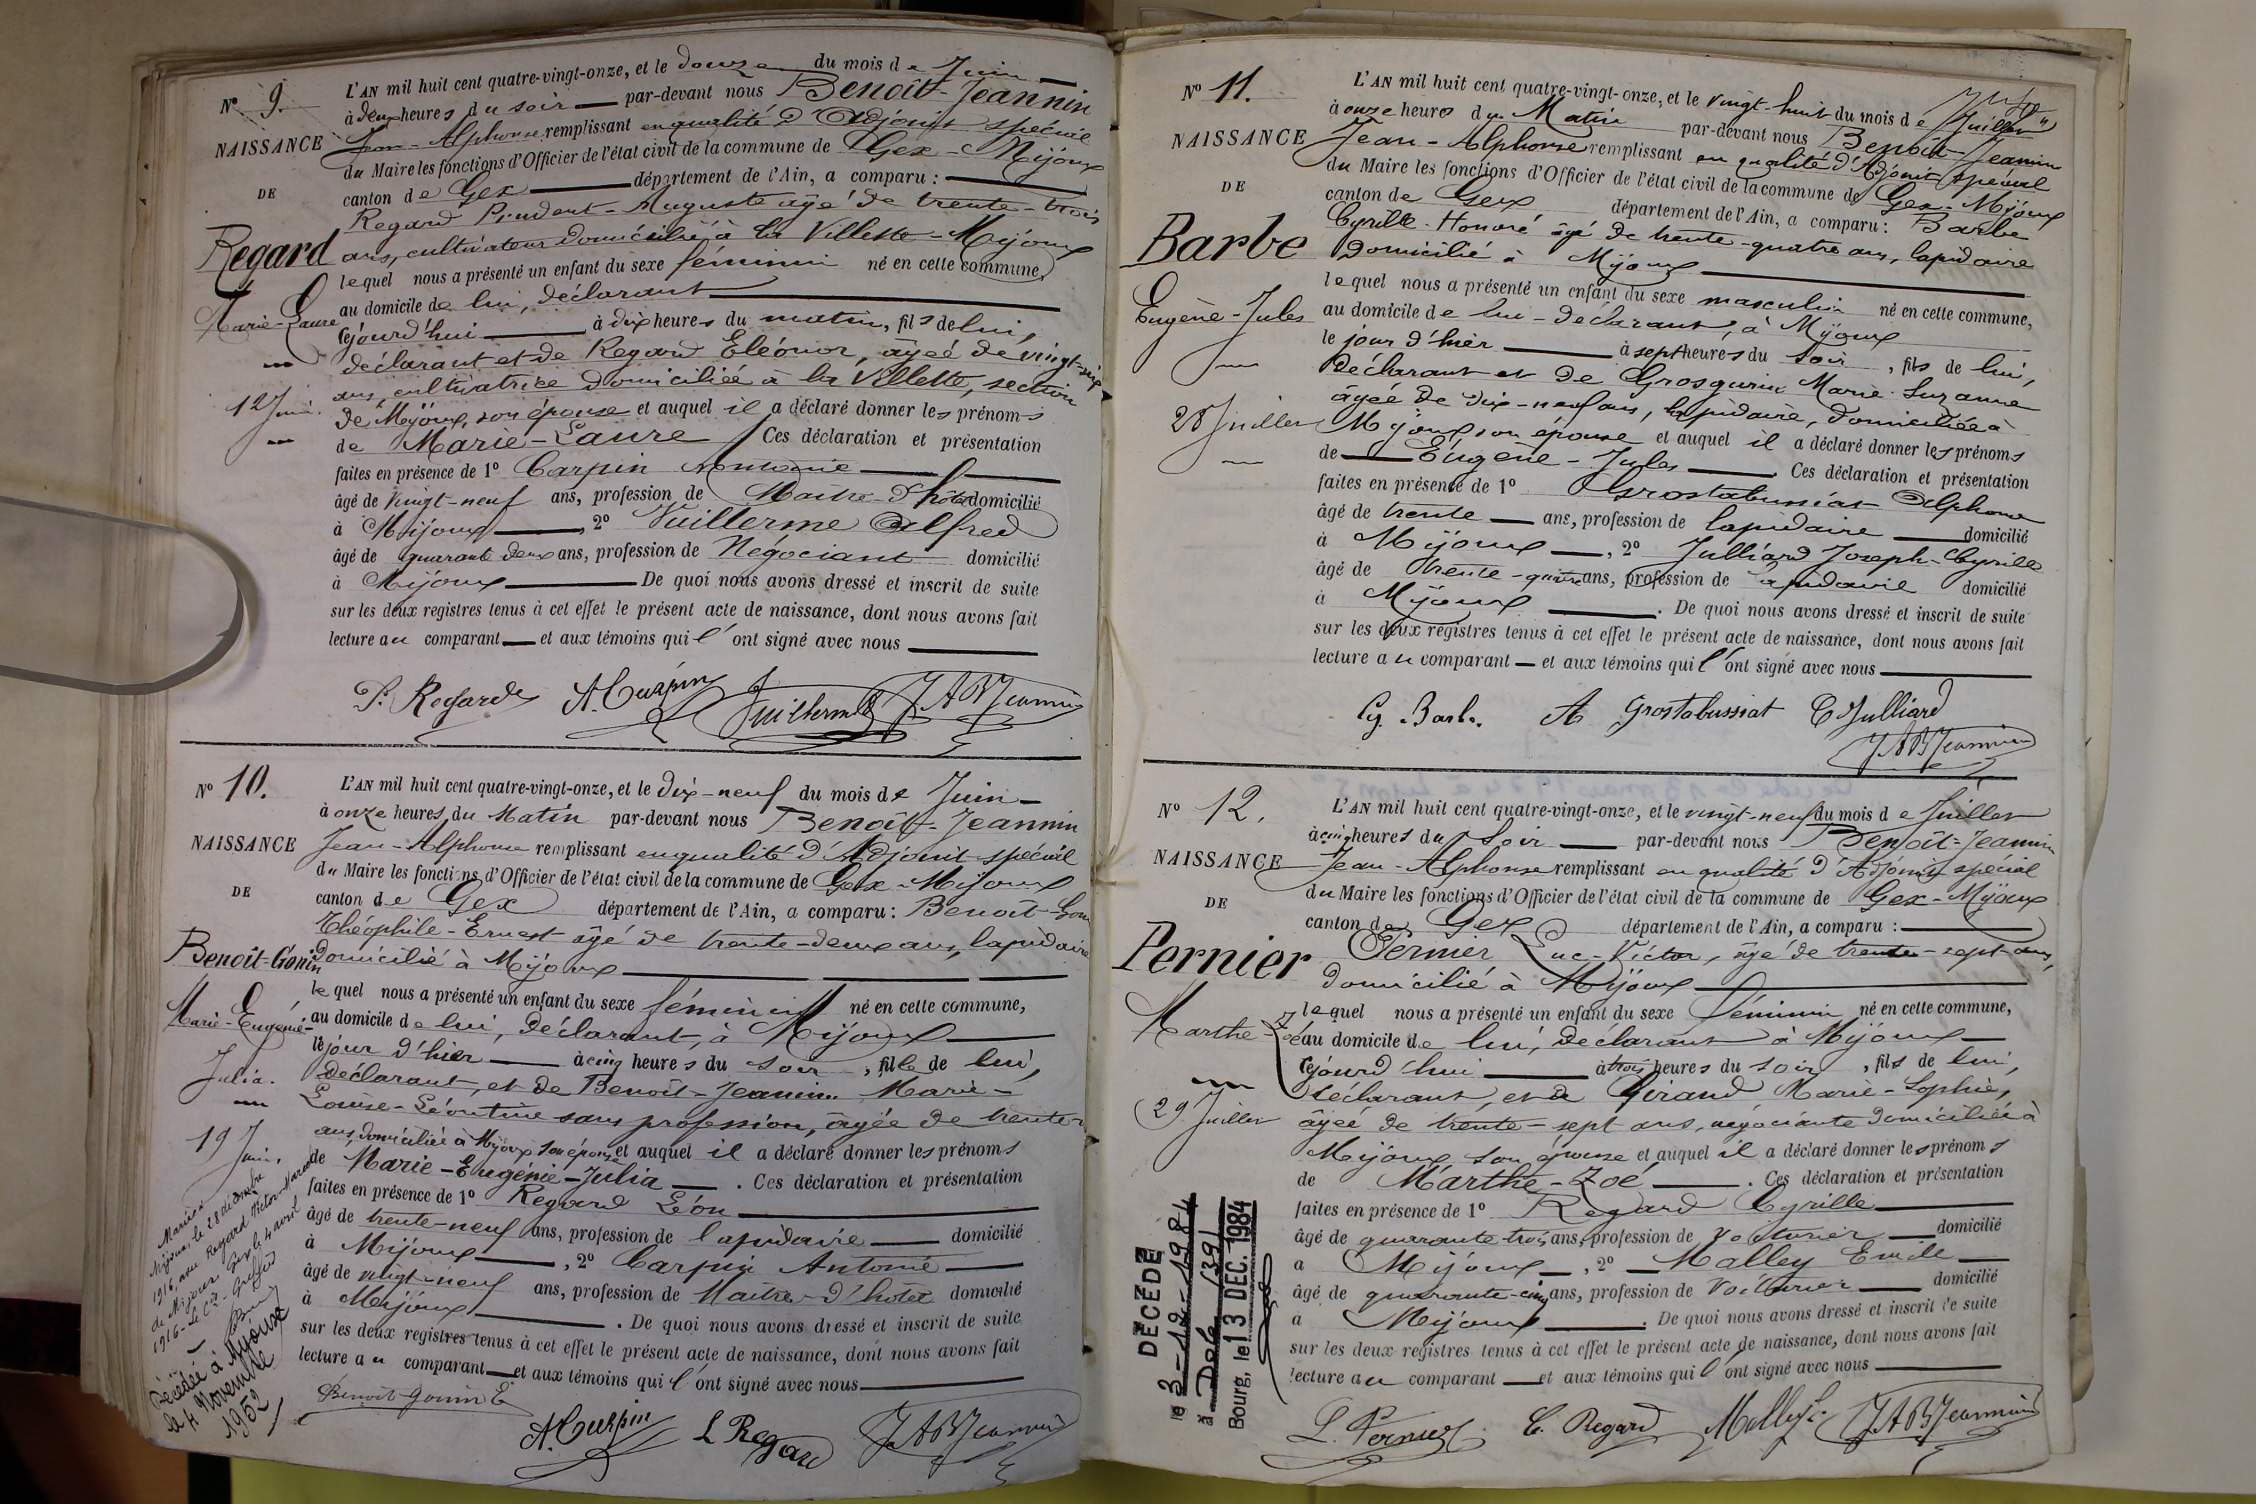 N° 9.
NAISSANCE
DE
Regard
Marie-Laure
12 Juin.
L'AN mil huit cent quatre-vingt-onze, et le douze du mois de Juin
à deux heures du soir par-devant nous Benoît-Jeannin
Jean-Alphonse remplissant en qualité d'Adjoint spécial
du Maire les fonctions d'Officier de l'état civil de la commune de Gex-Mijoux
canton de Gex département de l'Ain, a comparu :
Regard Prudent-Auguste âgé de trente-trois
ans, cultivateur domicilié à la Villette-Mijoux
lequel nous a présenté un enfant du sexe féminin né en cette commune,
au domicile de lui, déclarant
cejourd'hui à dix heures du matin, fils de lui,
déclarant et de Regard Eléonor, âgée de vingt-six
ans, cultivatrice domiciliée à la Villette, section
de Mijoux, son épouse et auquel il a déclaré donner les prénoms
de Marie-Laure Ces déclaration et présentation
faites en présence de 1° Carpin Antoine
âgé de vingt-neuf ans, profession de Maître-d'hôtel domicilié
à Mijoux, 2° Vuillerme Alfred
âgé de quarante deux ans, profession de Négociant domicilié
à Mijoux De quoi nous avons dressé et inscrit de suite
sur les deux registres tenus à cet effet le présent acte de naissance, dont nous avons fait
lecture au comparant et aux témoins qui l'ont signé avec nous
P. Regard A. Curpin Vuillerme JABJeannin
N° 10.
NAISSANCE
DE
Benoît-Gonin
Marie-Eugénie-
Julia.
19 Juin.
Mariée à
Mijoux, le 28 décembre
1916, avec Regard Victor-Marcel
de Mijoux Gex le 4 avril
1916 - Le Cis-Greffier
Décédée à Mijoux
le 4 Novembre
1952
L'AN mil huit cent quatre-vingt-onze, et le dix-neuf du mois de Juin
à onze heures du Matin par-devant nous Benoît-Jeannin
Jean-Alphonse remplissant en qualité d'Adjoint spécial
du Maire les fonctions d'Officier de l'état civil de la commune de Gex-Mijoux
canton de Gex département de l'Ain, a comparu : Benoît-Gonin
Théophile-Ernest âgé de trente-deux ans, lapidaire
domicilié à Mijoux
lequel nous a présenté un enfant du sexe féminin né en cette commune,
au domicile de lui, déclarant, à Mijoux
le jour d'hier à cinq heures du soir, fille de lui,
déclarant, et de Benoît-Jeannin Marie-
Louise-Léontine sans profession, âgée de trente-
ans, domiciliée à Mijoux son épouse et auquel il a déclaré donner les prénoms
de Marie-Eugénie-Julia. Ces déclaration et présentation
faites en présence de 1° Regard Léon
âgé de trente-neuf ans, profession de lapidaire domicilié
à Mijoux, 2° Carpin Antoine
âgé de vingt-neuf ans, profession de Maître-d'hôtel domicilié
à Mijoux. De quoi nous avons dressé et inscrit de suite
sur les deux registres tenus à cet effet le présent acte de naissance, dont nous avons fait
lecture au comparant et aux témoins qui l'ont signé avec nous
Benoit-gonin E. A. Curpin L Regard JABJeannin
N° 11.
NAISSANCE
DE
Barbe
Eugène-Jules
28 Juillet
L'AN mil huit cent quatre-vingt-onze, et le vingt-huit du mois de Juillet
à onze heures du Matin par-devant nous Benoît-Jeannin
Jean-Alphonse remplissant en qualité d'Adjoint spécial
du Maire les fonctions d'Officier de l'état civil de la commune de Gex-Mijoux
canton de Gex département de l'Ain, a comparu : Barbe
Cyrille-Honoré âgé de trente-quatre ans, lapidaire
domicilié à Mijoux
lequel nous a présenté un enfant du sexe masculin né en cette commune,
au domicile de lui-déclarant, à Mijoux
le jour d'hier à sept heures du soir, fils de lui,
déclarant et de Grosgurin Marie-Suzanne
âgée de dix-neuf ans, lapidaire, domiciliée à
Mijoux son épouse et auquel il a déclaré donner les prénoms
de Eugène-Jules. Ces déclaration et présentation
faites en présence de 1° Grostabussiat Alphonse
âgé de trente ans, profession de lapidaire domicilié
à Mijoux, 2° Julliard Joseph-Cyrille
âgé de trente-quatre ans, profession de lapidaire domicilié
à Mijoux. De quoi nous avons dressé et inscrit de suite
sur les deux registres tenus à cet effet le présent acte de naissance, dont nous avons fait
lecture au comparant et aux témoins qui l'ont signé avec nous
Cy. Barbe. A Grostabussiat C Julliard
JABJeannin
N° 12.
NAISSANCE
DE
Pernier
Marthe-Zoé
29 Juillet
DÉCÉDÉ
le 3-12-1984
à Dole (39)
Bourg, le 13 DEC. 1984
L'AN mil huit cent quatre-vingt-onze, et le vingt-neuf du mois de Juillet
à cinq heures du soir par-devant nous Benoît-Jeannin
Jean-Alphonse remplissant en qualité d'Adjoint spécial
du Maire les fonctions d'Officier de l'état civil de la commune de Gex-Mijoux
canton de Gex département de l'Ain, a comparu :
Pernier Luc-Victor, âgé de trente-sept ans,
domicilié à Mijoux
lequel nous a présenté un enfant du sexe féminin né en cette commune,
au domicile de lui, déclarant à Mijoux
cejourd'hui à trois heures du soir, fils de lui,
déclarant, et de Girand Marie-Sophie,
âgée de trente-sept ans, négociante domiciliée à
Mijoux son épouse et auquel il a déclaré donner les prénoms
de Marthe-Zoé. Ces déclaration et présentation
faites en présence de 1° Regard Cyrille
âgé de quarante-trois ans, profession de Voiturier domicilié
à Mijoux, 2° Malley Emile
âgé de quarante-cinq ans, profession de Voiturier domicilié
à Mijoux. De quoi nous avons dressé et inscrit de suite
sur les deux registres tenus à cet effet le présent acte de naissance, dont nous avons fait
lecture au comparant et aux témoins qui l'ont signé avec nous
L. Pernier C. Regard Malley E. JABJeannin